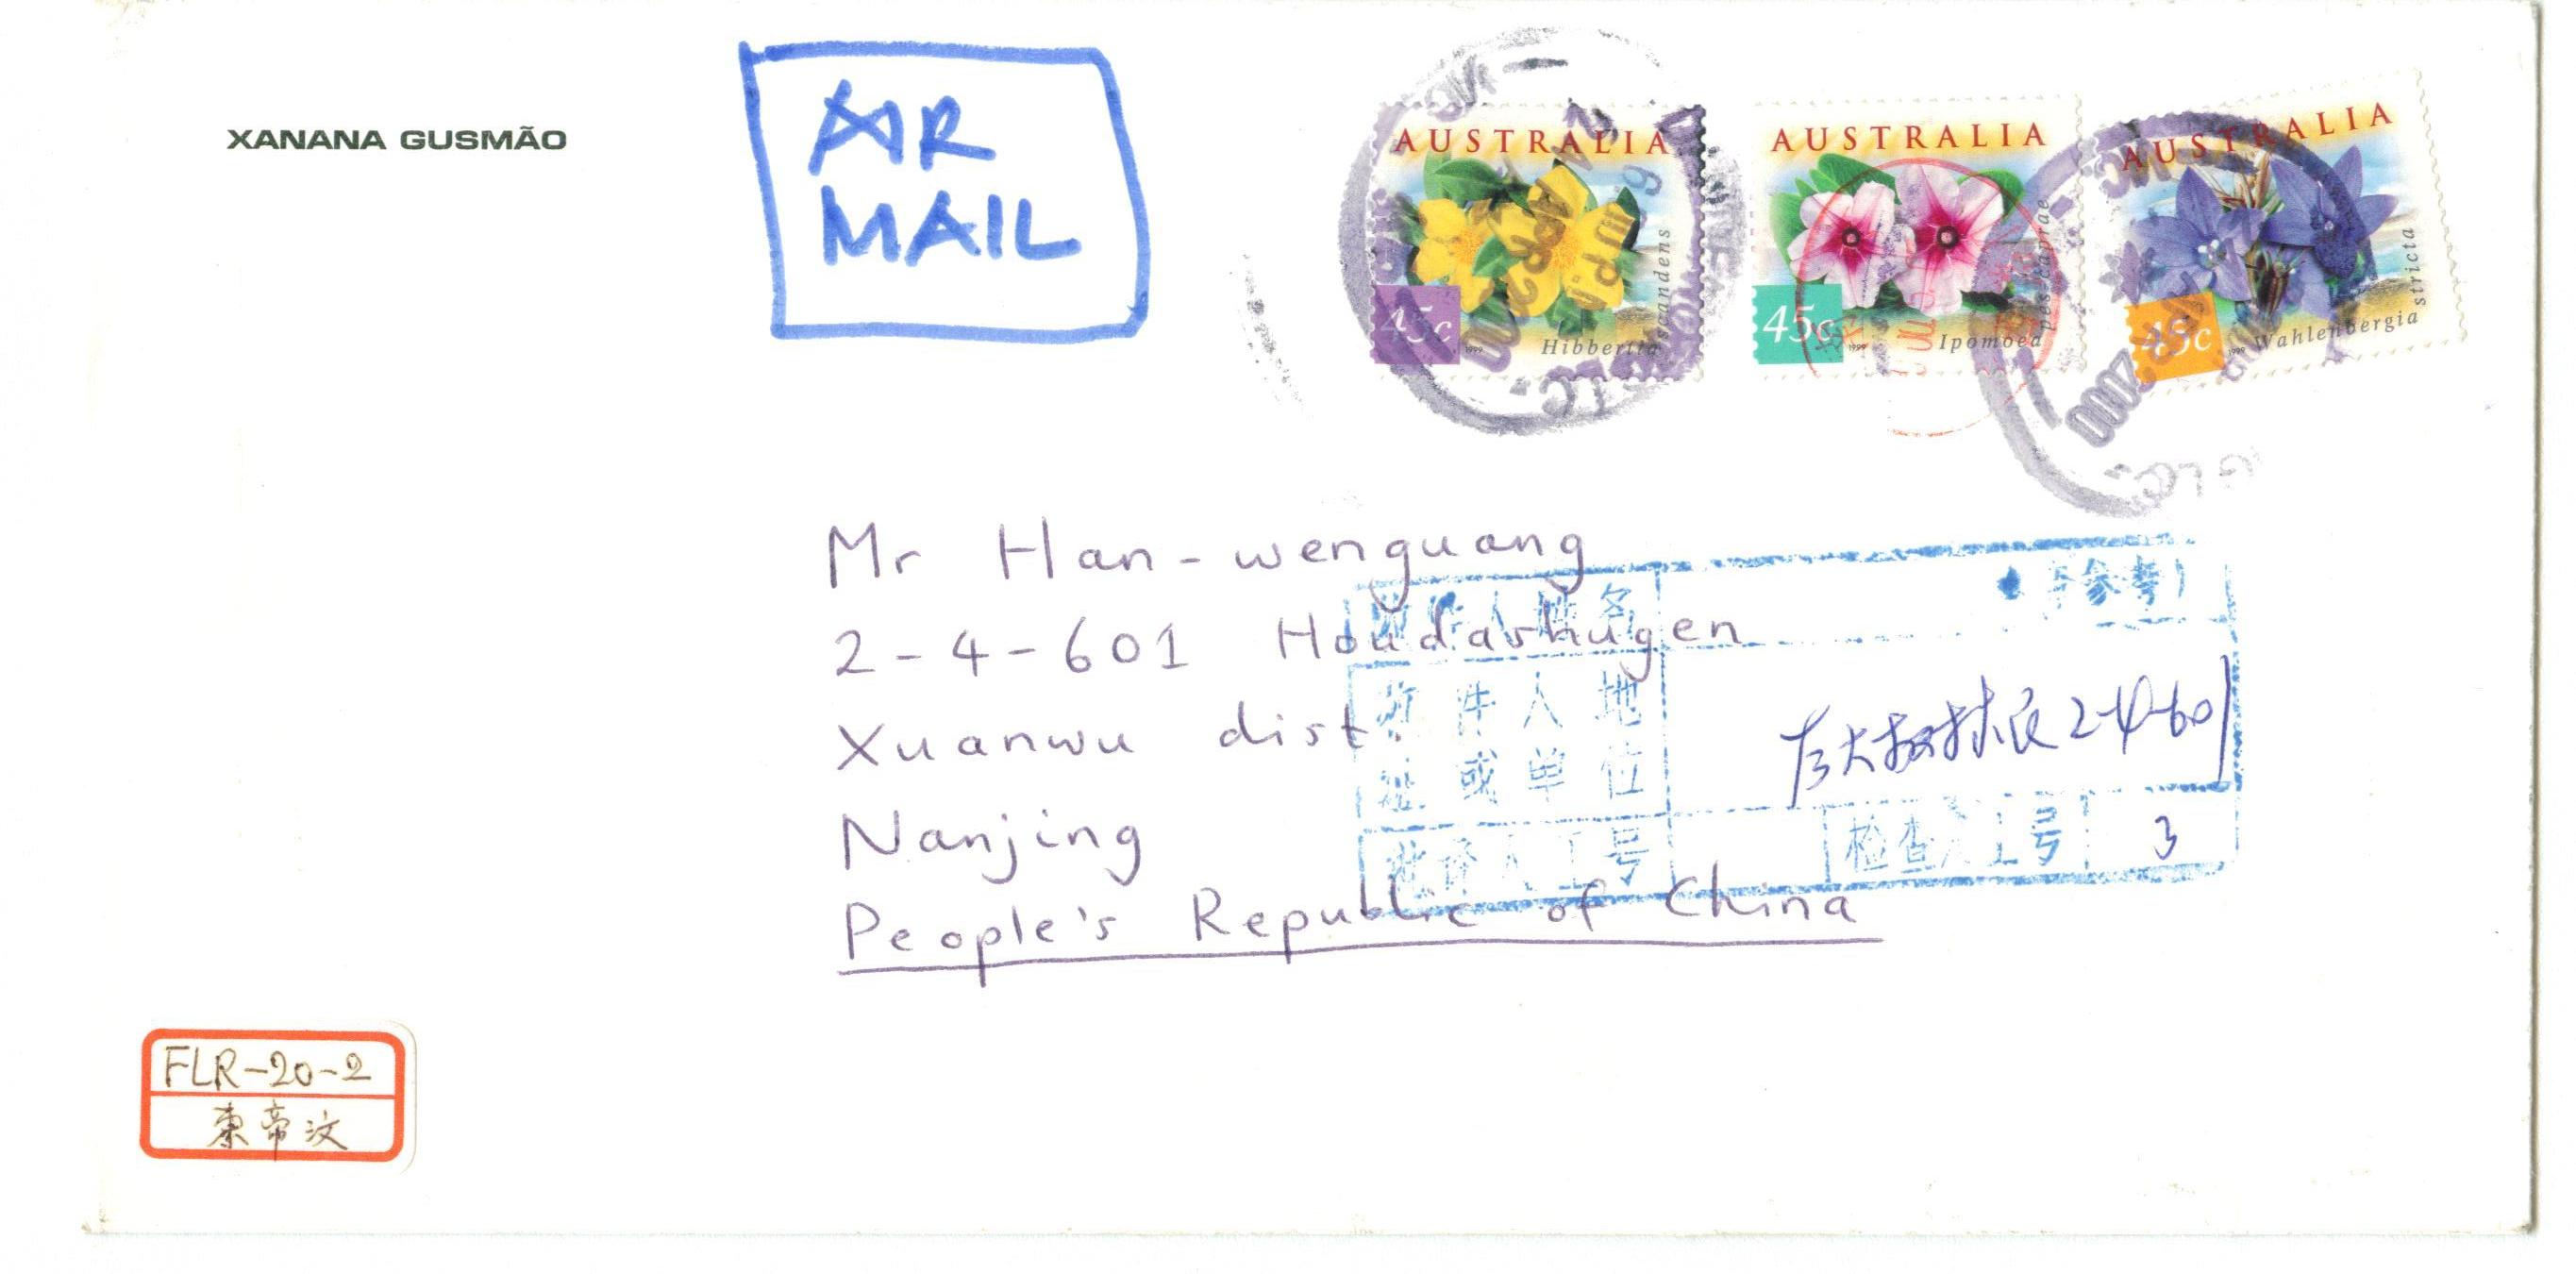 XANANA GUSMÃO
AIR
MAIL
AUSTRALIA
45c
1999
Hibbertia scandens
AUSTRALIA
45c
1999
Ipomoea pes-caprae
AUSTRALIA
45c
1999
Wahlenbergia stricta
2000
Mr Han-wenguang
2-4-601 Houdashugen
Xuanwu dist.
Nanjing
People's Republic of China
人姓名
参考)
件人地
址或单位
2-4-601
批译人工号
检查人工号
3
FLR-20-2
東帝汶